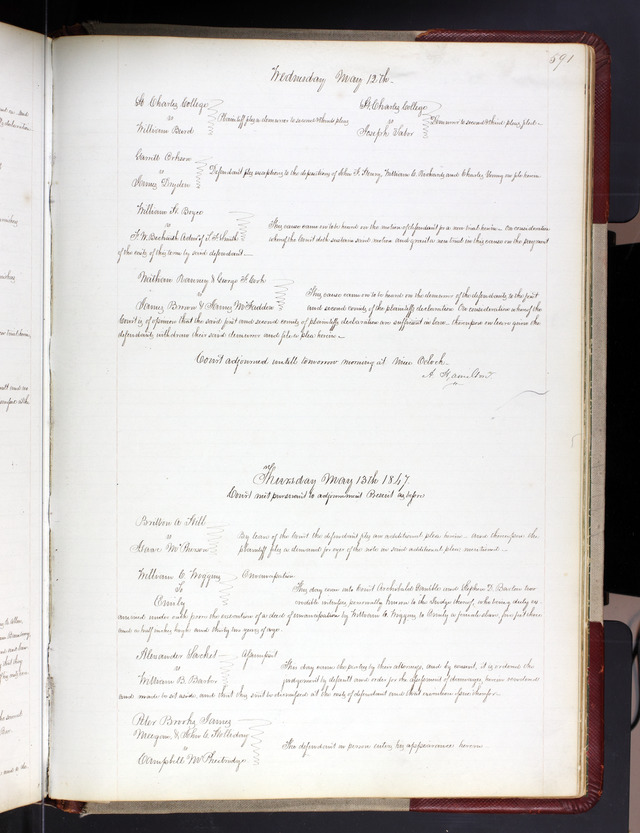 591
Wednesday May 12th
St Charles College
vs
William Beird
Plaintiff files demurrer to second & third pleas
St. Charles College
vs
Joseph
Demurrer to second & third pleas filed
Garrett
vs
James Dryden
Defendant files exceptions to the deposition of John F. Henry, William C. Richards and Charles Young on file herein
William H. Bryce
vs
F. W. Beckwith Adm'r of F. F. Smith
This cause came on to be heard on the motion of defendant for a new trial herein. On consideration
whereof the Court doth sustain said motion and grant a new trial in this cause on the payment
of the costs of this term by said defendant
William Ranney & George F. Cook
vs
James Brown & James McFadden
This cause came on to be heard on the demurrer of the defendants to the first
and second counts of the plaintiffs declaration On consideration whereof the
Court is of opinion that the said first and second counts of plaintiffs declaration are sufficient in law thereupon on leave given the
defendants withdraw their said demurrer and file a plea herein
Court adjourned untill tomorrow morning at nine Oclock
A Hamilton
Thursday May 13th 1847
Court met pursuant to adjournment Present as before
Britton A Hill
vs
Isaac McPherson
By leave of the Court the defendant files an additional plea herein and thereupon the
plaintiff files a demand for oyer of the note in said additional plea mentioned
William C. Wiggins
To
Emily
Emancipation
This day came into Court Archibald Gamble and Stephen D. Barlow two
credible witnesses, personally known to the Judge thereof, who being duly ex
amined under oath prove the execution of a deed of emancipation by William C. Wiggins to Emily a female slave five feet three
and a half inches high and thirty two years of age.
Alexander Sacket
vs
William B. Barber
Assumpsit
This day came the parties by their attorneys, and by consent, it is ordered the
judgement by default and order for the assessment of damages, herein rendered
and made be set aside, and that this suit be dismissed at the costs of defendant and that execution issue therefor
Peter Brooks James
Meegan & John C. Holliday
vs
Campbell McPheebridge
The defendant in person enters his appearance herein